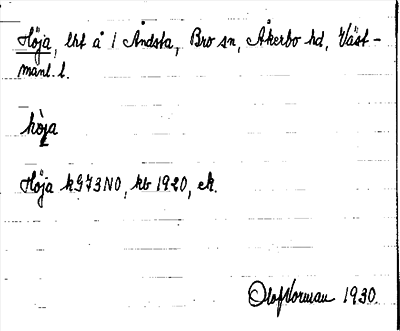 Höja, lht å 1 Åndsta, Bro sn, Åkerbo hd, Väst-
manl. l.
hö̀ja
Höja kG73NO, kb 1920, ek.
Olof Norman 1930.